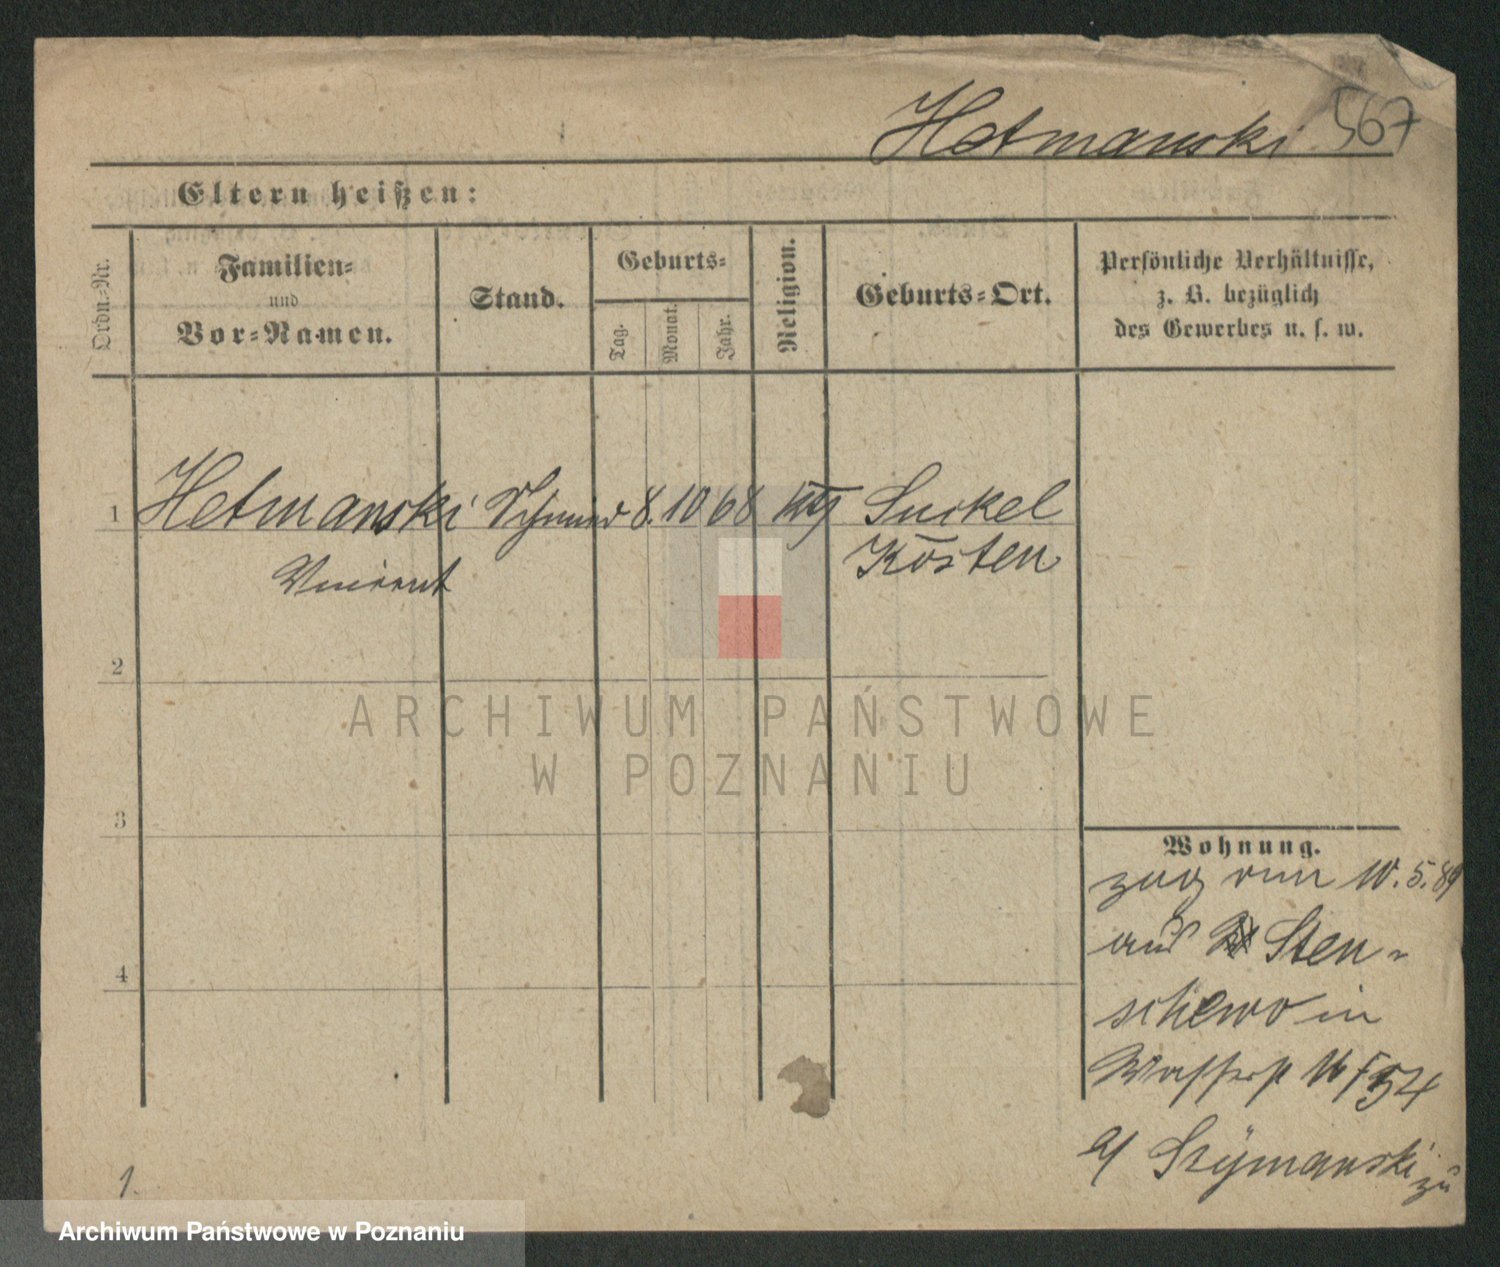 Hetmanski 567
Eltern heißen:
Ordn.-Nr.
Familien-
und
Vor-Namen.
Stand.
Geburts-
Tag.
Monat.
Jahr.
Religion.
Geburts-Ort.
Persönliche Verhältnisse,
z. B. bezüglich
des Gewerbes u. s. w.
1 Hetmanski Schmied 8. 10 68 kth Suckel
Vincent Kosten
2
3
4
Wohnung.
zug von 10.5.89
aus Sten-
schewo in
Wasserst 16/54
a/ Szymanski zu
1.
ARCHIWUM PAŃSTWOWE
W POZNANIU
Archiwum Państwowe w Poznaniu